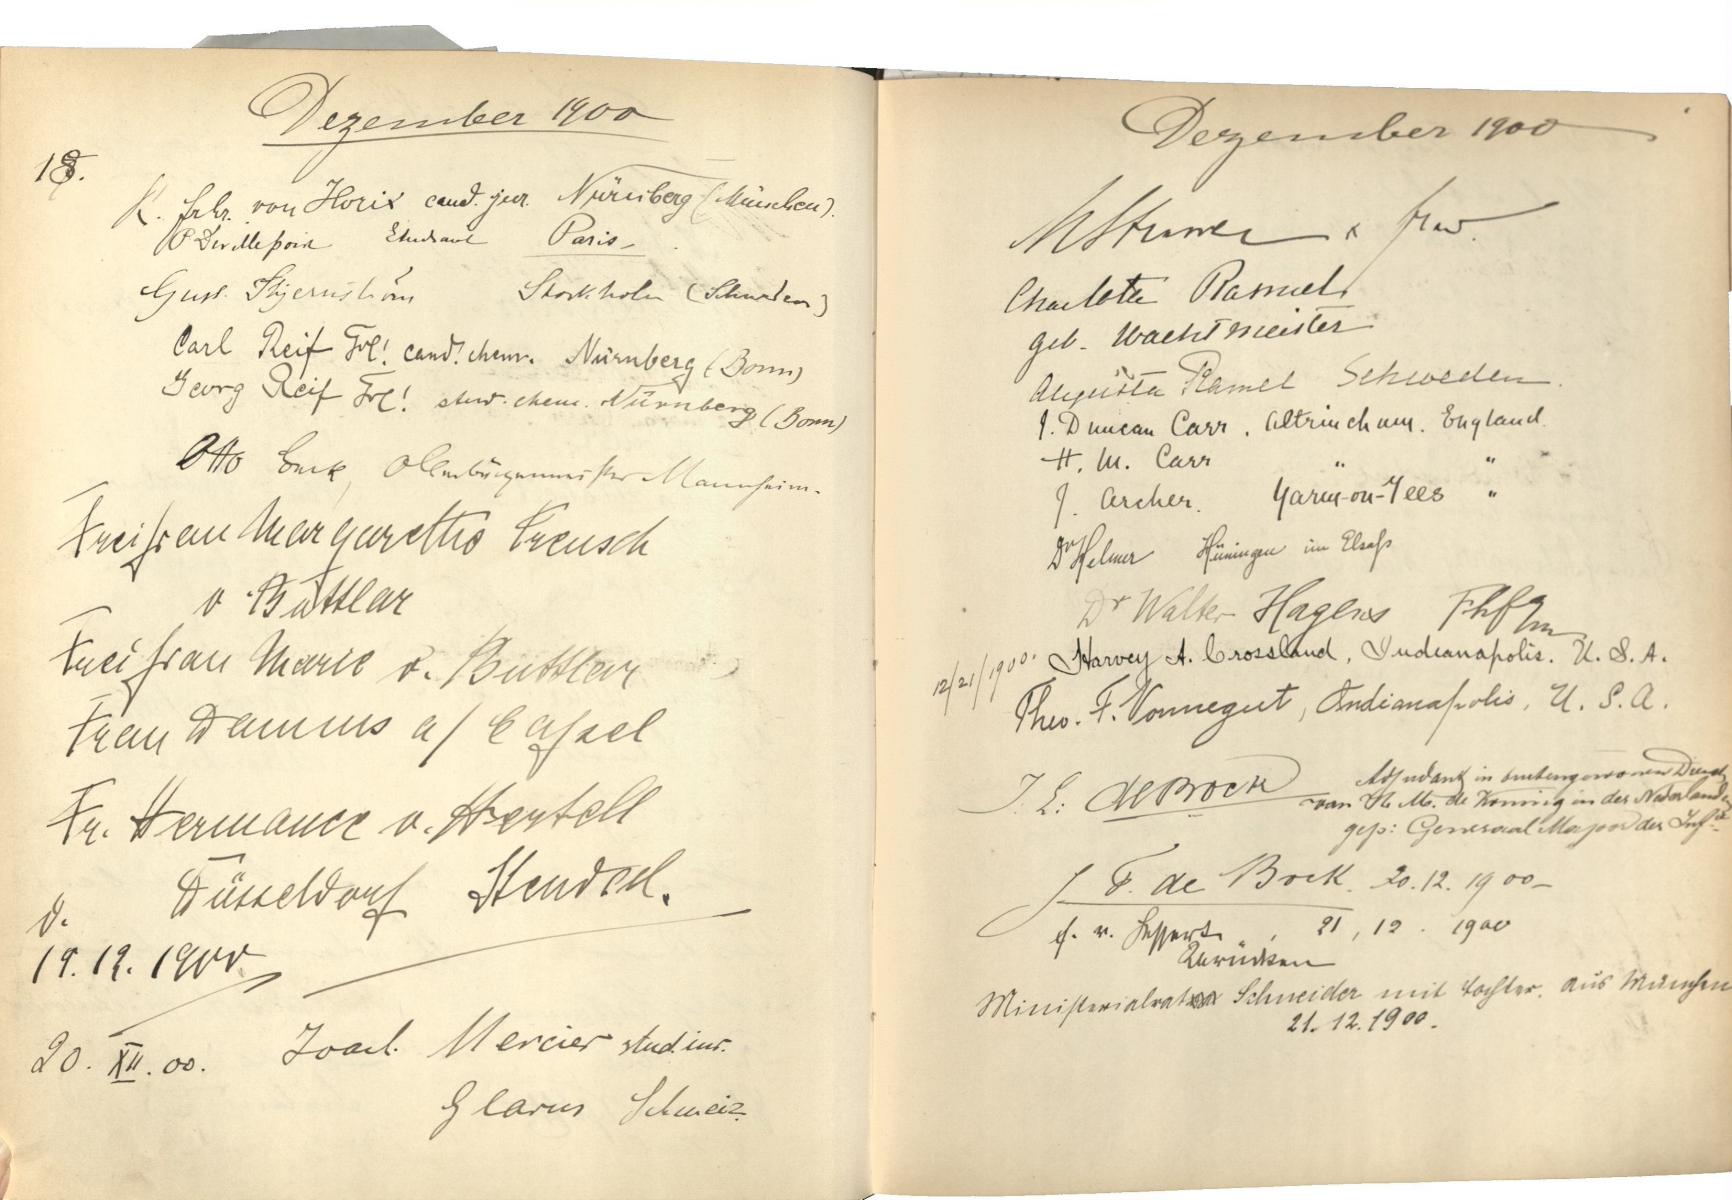 Dezember 1900
18.
K. Frhr. von Horix cand. jur. Nürnberg (München).
Paris
Gust. Stjernström Stockholm (Schweden)
Carl Reif Frl! cand. chem. Nürnberg (Bonn)
Georg Reif Frl! stud. chem. Nürnberg (Bonn)
Otto Beck, Oberbürgermeister Mannheim.
Freifrau Margarethe Treusch
v. Buttlar
Freifrau Marie v. Buttlar
Frau Damms a/ Cassel
Fr. Hermance v. Hertell
Düsseldorf Stendal.
d.
19.12.1900
20. XII. 00. Joach. Mercier stud. iur.
Glarus Schweiz.
Dezember 1900
Charlotte Ramel
geb. Wachtmeister
Augusta Ramel Schweden.
J. Duncan Carr. Altrincham. England.
H. M. Carr " "
J. Archer. Yarm-on-Tees "
Dr Helmer Hüningen im Elsass
Dr Walter Hagens
12/21/1900. Harvey A. Crossland, Indianapolis. U. S. A.
Theo. F. Vonnegut, Indianapolis, U. S. A.
de Bock Adjudant in buitengewonen Dienst
van H. M. de Koning in der Nederlanden
gep: Generaal Majoor der Inf.
J F. de Bock. 20.12.1900
21, 12. 1900
Ministerialrat Schneider mit Tochter. aus München
21.12.1900.